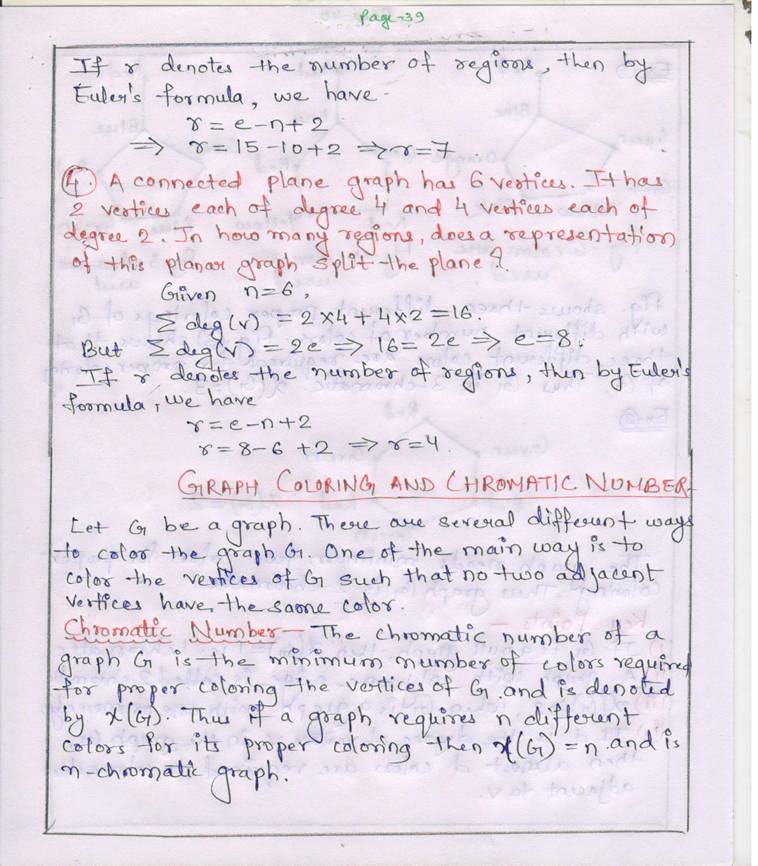 Page-39
If r denotes the number of regions, then by
Euler's formula, we have -
r = e-n+2
⇒ r = 15-10+2 ⇒ r=7.
4. A connected plane graph has 6 vertices. It has
2 vertices each of degree 4 and 4 vertices each of
degree 2. In how many regions, does a representation
of this planar graph split the plane?
Given n=6,
Σ deg(v) = 2×4 + 4×2 = 16.
But Σ deg(v) = 2e ⇒ 16 = 2e ⇒ e=8.
If r denotes the number of regions, then by Euler's
formula, we have
r = e-n+2
r = 8-6+2 ⇒ r=4.
GRAPH COLORING AND CHROMATIC NUMBER-
Let G be a graph. There are several different ways
to color the graph G. One of the main way is to
color the vertices of G such that no two adjacent
vertices have, the same color.
Chromatic Number - The chromatic number of a
graph G is the minimum number of colors required
for proper coloring the vertices of G. and is denoted
by χ(G). Thus if a graph requires n different
colors for its proper coloring then χ(G) = n and is
n-chromatic graph.